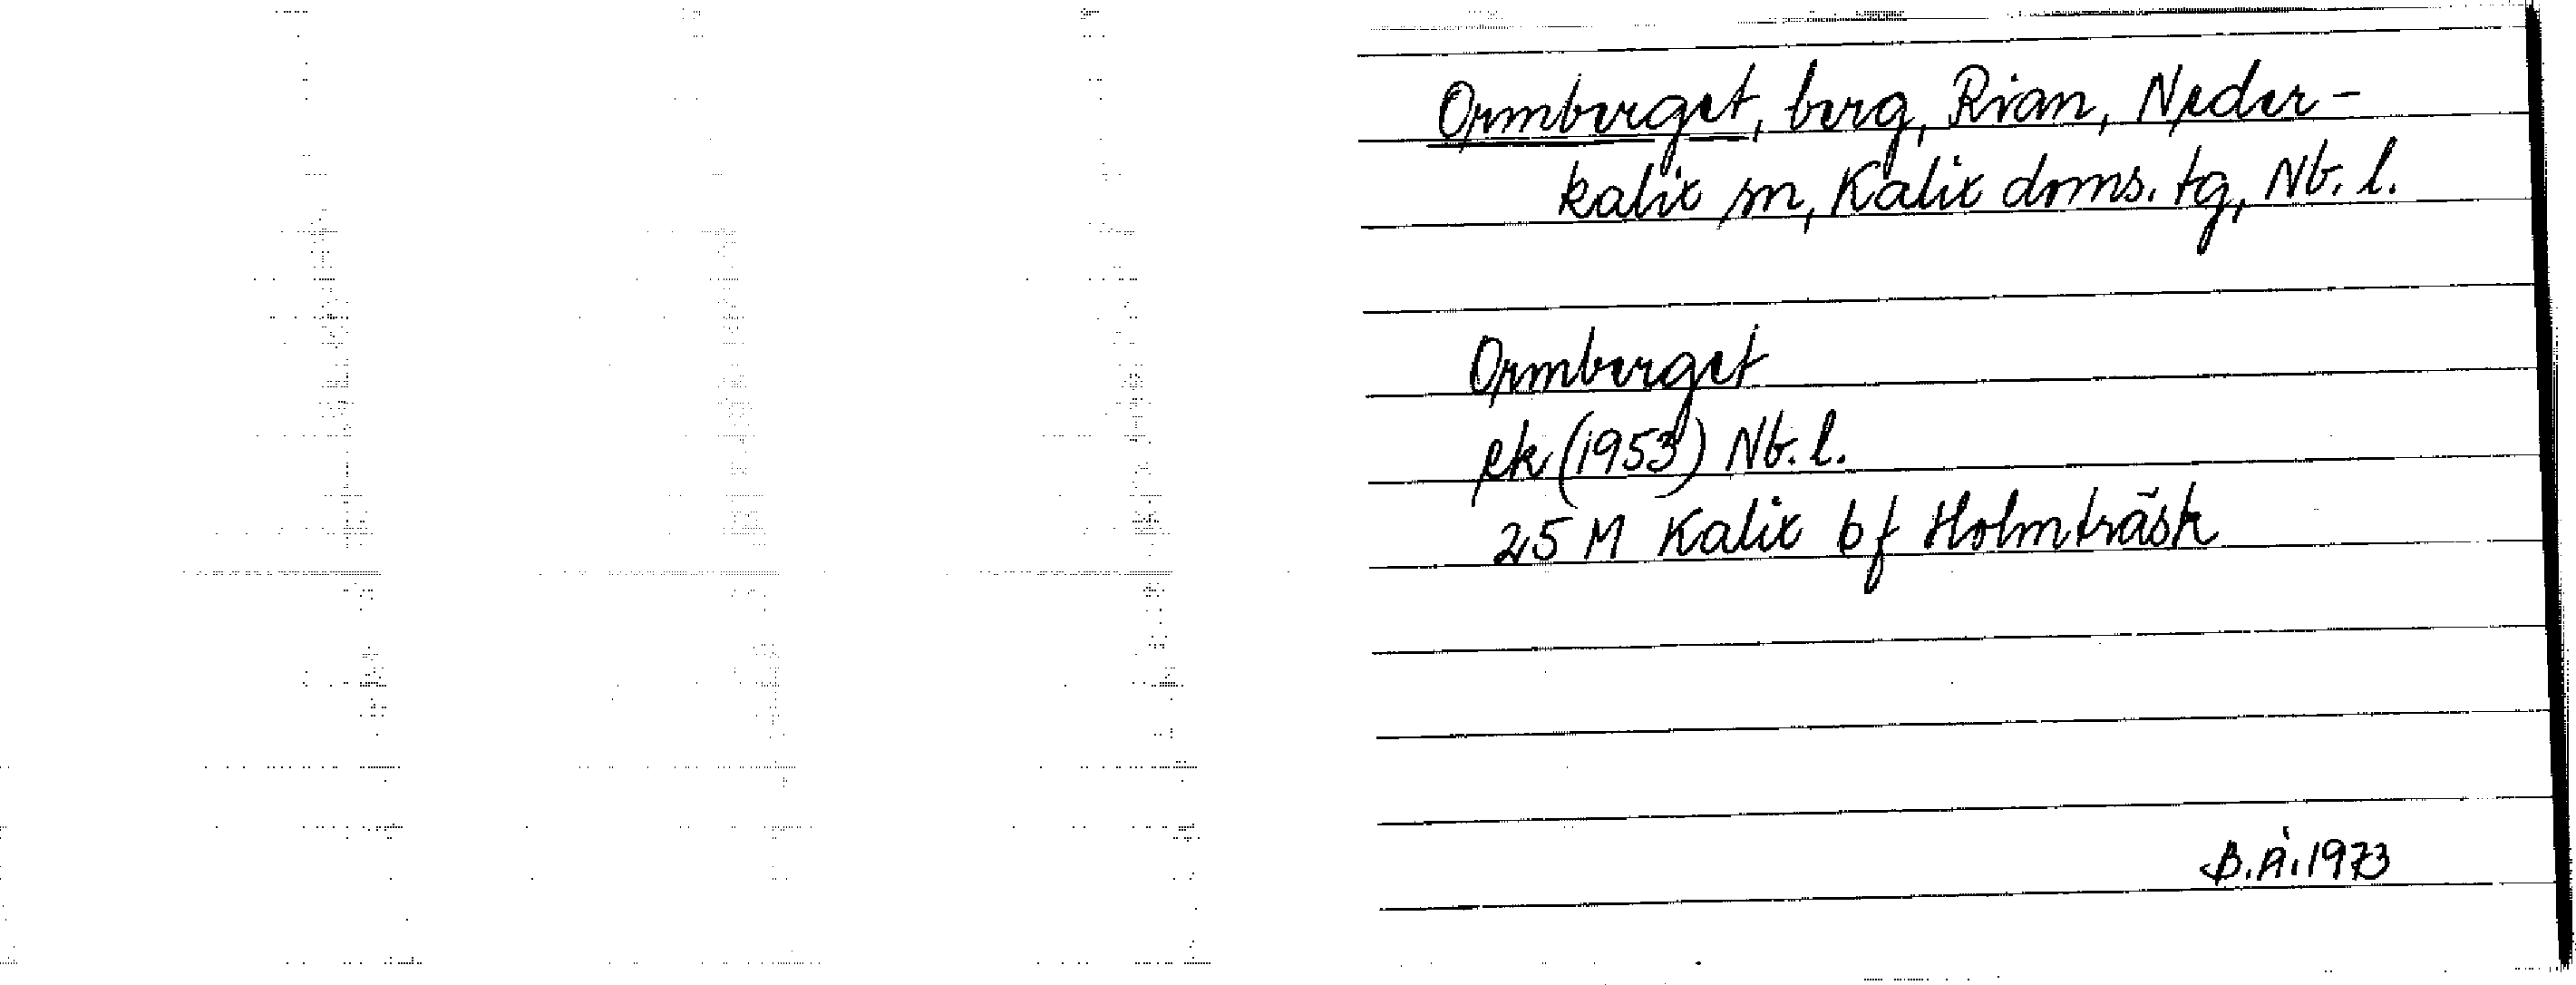 Ormberget, berg, Rian, Neder-
kalix sn, Kalix doms. tg, Nb. l.
Ormberget
ek (1953) Nb. l.
25 M Kalix bf Holmträsk
B.Å. 1973